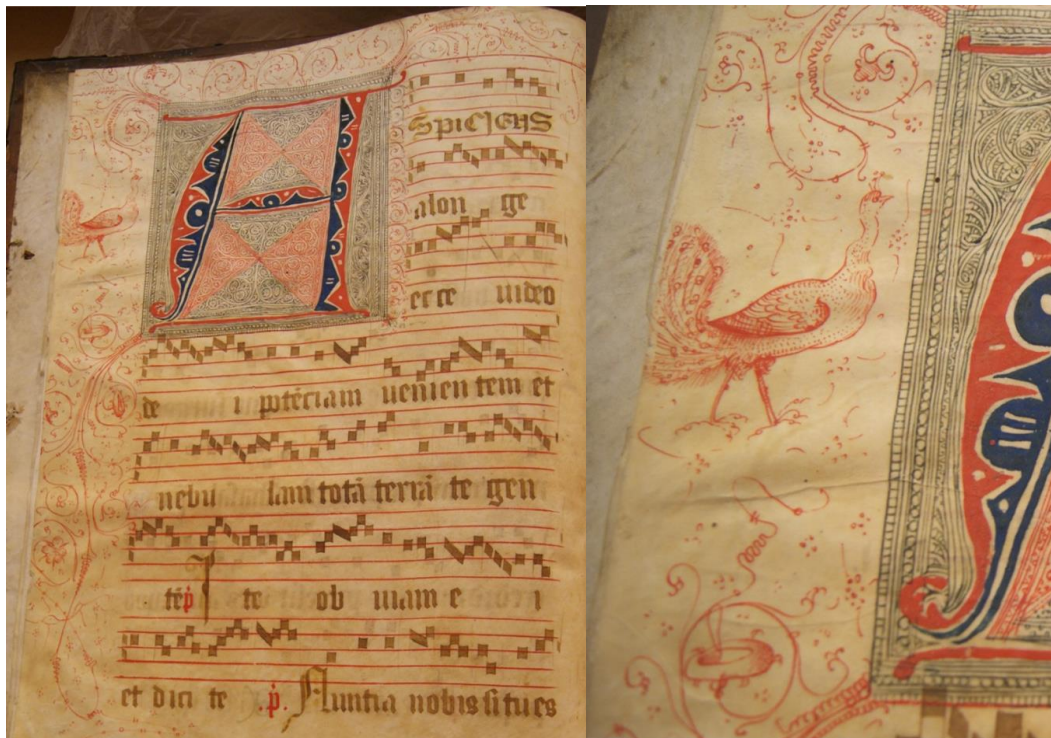 ASPICIENS
alon ge
ecce uideo
de i potēciam uenien tem et
nebu lam totā terrā te gen
tē ṗ I te ob uiam e i
et dici te .ṗ. Nuntia nobis si tu es